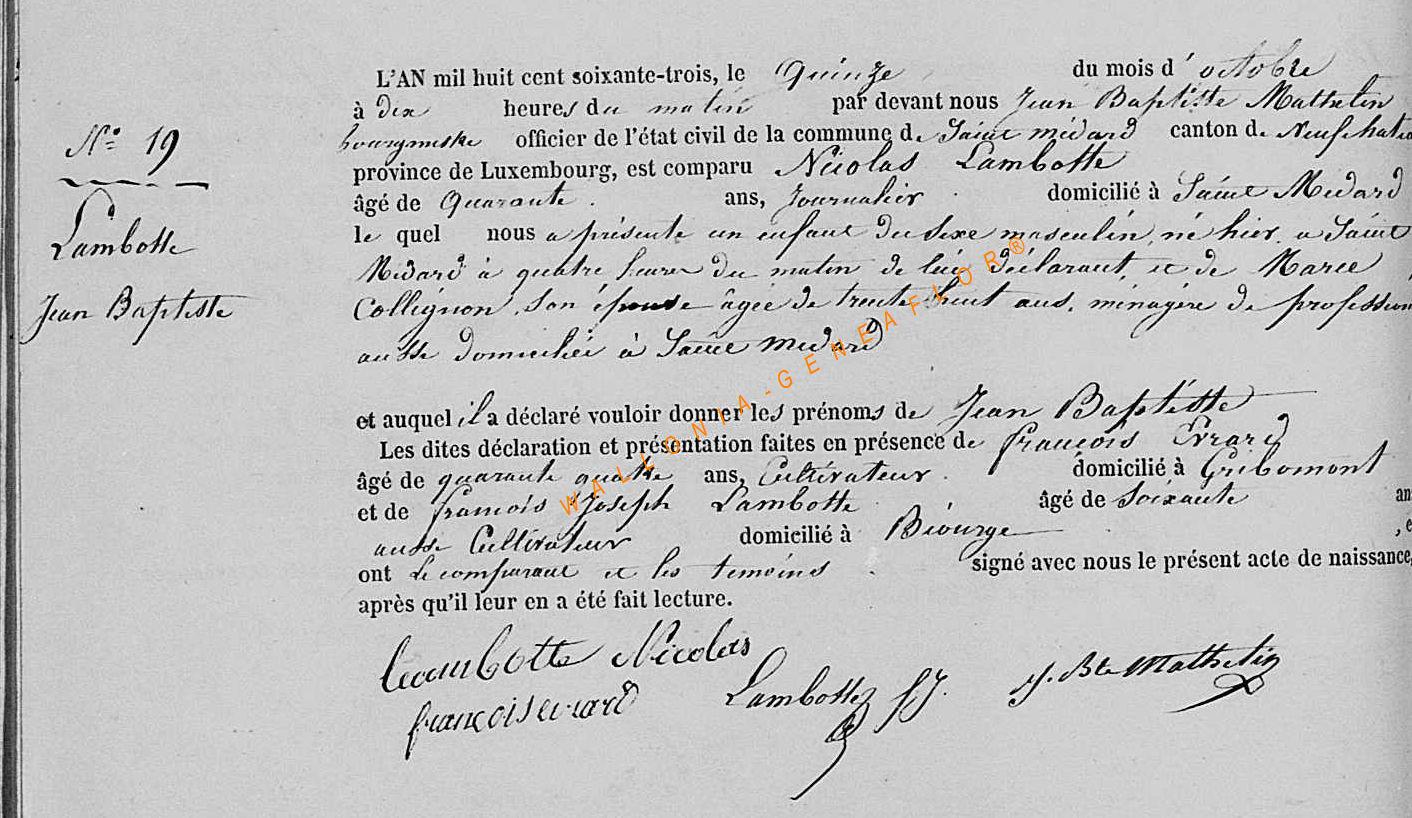 N° 19
Lambotte
Jean Baptiste
L'AN mil huit cent soixante-trois, le Quinze du mois d'octobre
à dix heures du matin par devant nous Jean Baptiste Mathelin
bourgmestre officier de l'état civil de la commune de Saint médard canton de Neufchateau
province de Luxembourg, est comparu Nicolas Lambotte
âgé de Quarante ans, Journalier domicilié à Saint Médard
le quel nous a présenté un enfant du sexe masculin, né hier, a Saint
Médard à quatre heures du matin de lui déclarant, et de Marie
Collignon, son épouse âgée de trente huit ans, ménagère de profession
aussi domiciliée à Saint médard
et auquel il a déclaré vouloir donner les prénoms de Jean Baptiste
Les dites déclaration et présentation faites en présence de françois Evrard
âgé de quarante quatre ans, Cultivateur. domicilié à Gribomont
et de françois Joseph Lambotte âgé de Soixante an
aussi Cultivateur domicilié à Biourge , e
ont le comparant et les témoins. signé avec nous le présent acte de naissance,
après qu'il leur en a été fait lecture.
Lambotte Nicolas
françois evrard
Lambotte fJ.
J. Bte Mathelin
WALLONIA-GENEAFLOR®